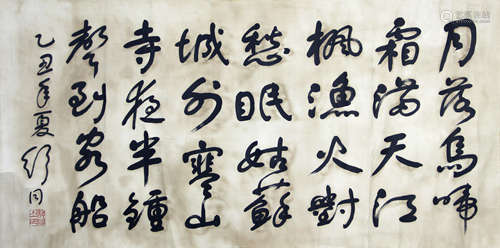 月落烏啼
霜滿天江
楓漁火對
愁眠姑蘇
城外寒山
寺夜半鐘
聲到客船
乙丑年夏舒同